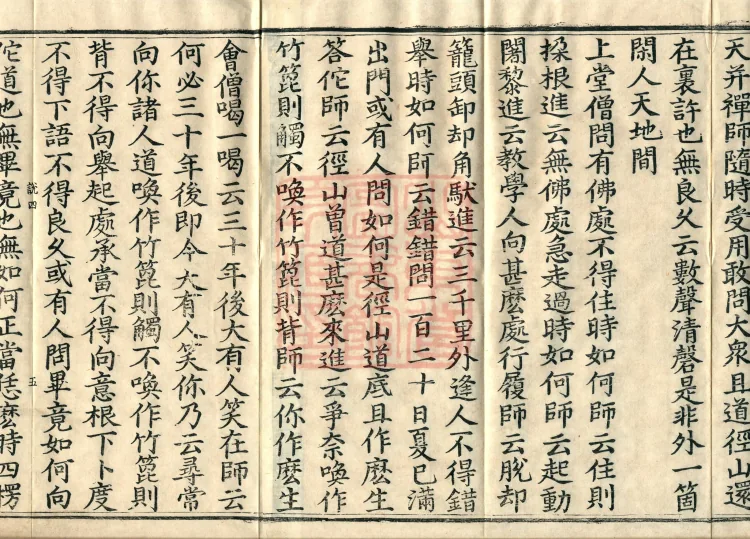 天并禪師隨時受用敢問大衆且道徑山還
在裏許也無良久云數聲清磬是非外一箇
閑人天地間
上堂僧問有佛處不得住時如何師云住則
搡根進云無佛處急走過時如何師云起動
闍黎進云教學人向甚麽處行履師云脫却
籠頭卸却角馱進云三千里外逢人不得錯
舉時如何師云錯錯問一百二十日夏已滿
出門或有人問如何是徑山道底且作麽生
答佗師云徑山曽道甚麽來進云爭奈喚作
竹篦則觸不喚作竹篦則背師云你作麽生
會僧喝一喝云三十年後大有人笑在師云
何必三十年後即今大有人笑你乃云尋常
向你諸人道喚作竹篦則觸不喚作竹篦則
背不得向舉起處承當不得向意根下卜度
不得下語不得良久或有人問畢竟如何向
佗道也無畢竟也無如何正當恁麽時四楞
説四
五